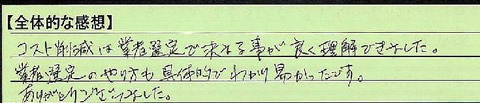 【全体的な感想】
コスト削減は業者選定で決まる事が良く理解できました。
業者選定のやり方も具体的でわかり易かったです。
ありがとうございました。